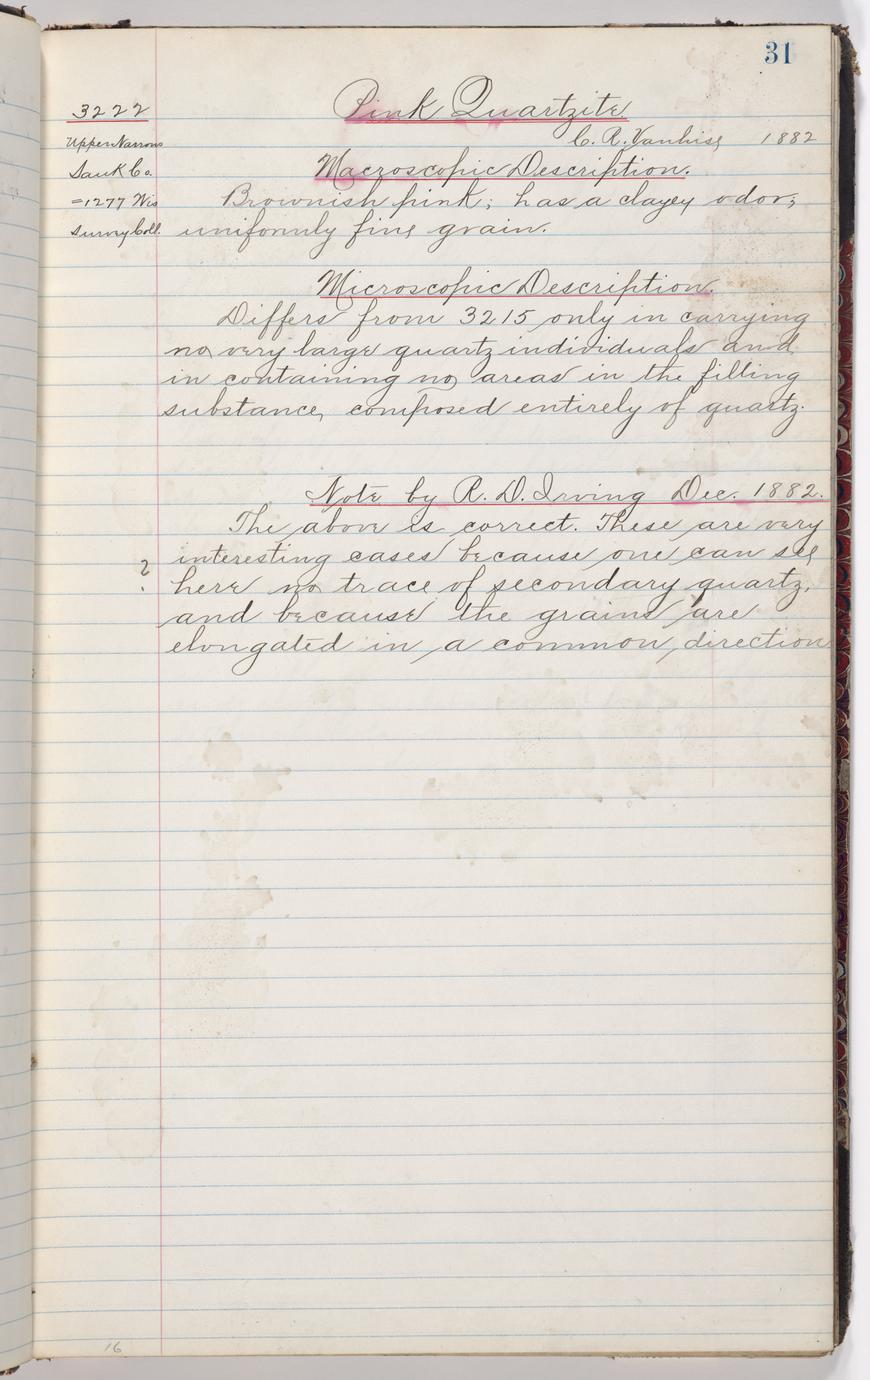 31
3222
Pink Quartzite.
Upper Narrows
C. R. Vanhise 1882
Sauk Co.
Macroscopic Description.
=1277 Wis
Brownish pink; has a clayey odor;
Survey Coll.
uniformly fine grain.
Microscopic Description.
Differs from 3215 only in carrying
no very large quartz individuals and
in containing no areas in the filling
substance, composed entirely of quartz.
Note by R. D. Irving Dec. 1882.
The above is correct. These are very
interesting cases because one can see
?
here no trace of secondary quartz,
and because the grains are
elongated in a common direction
16